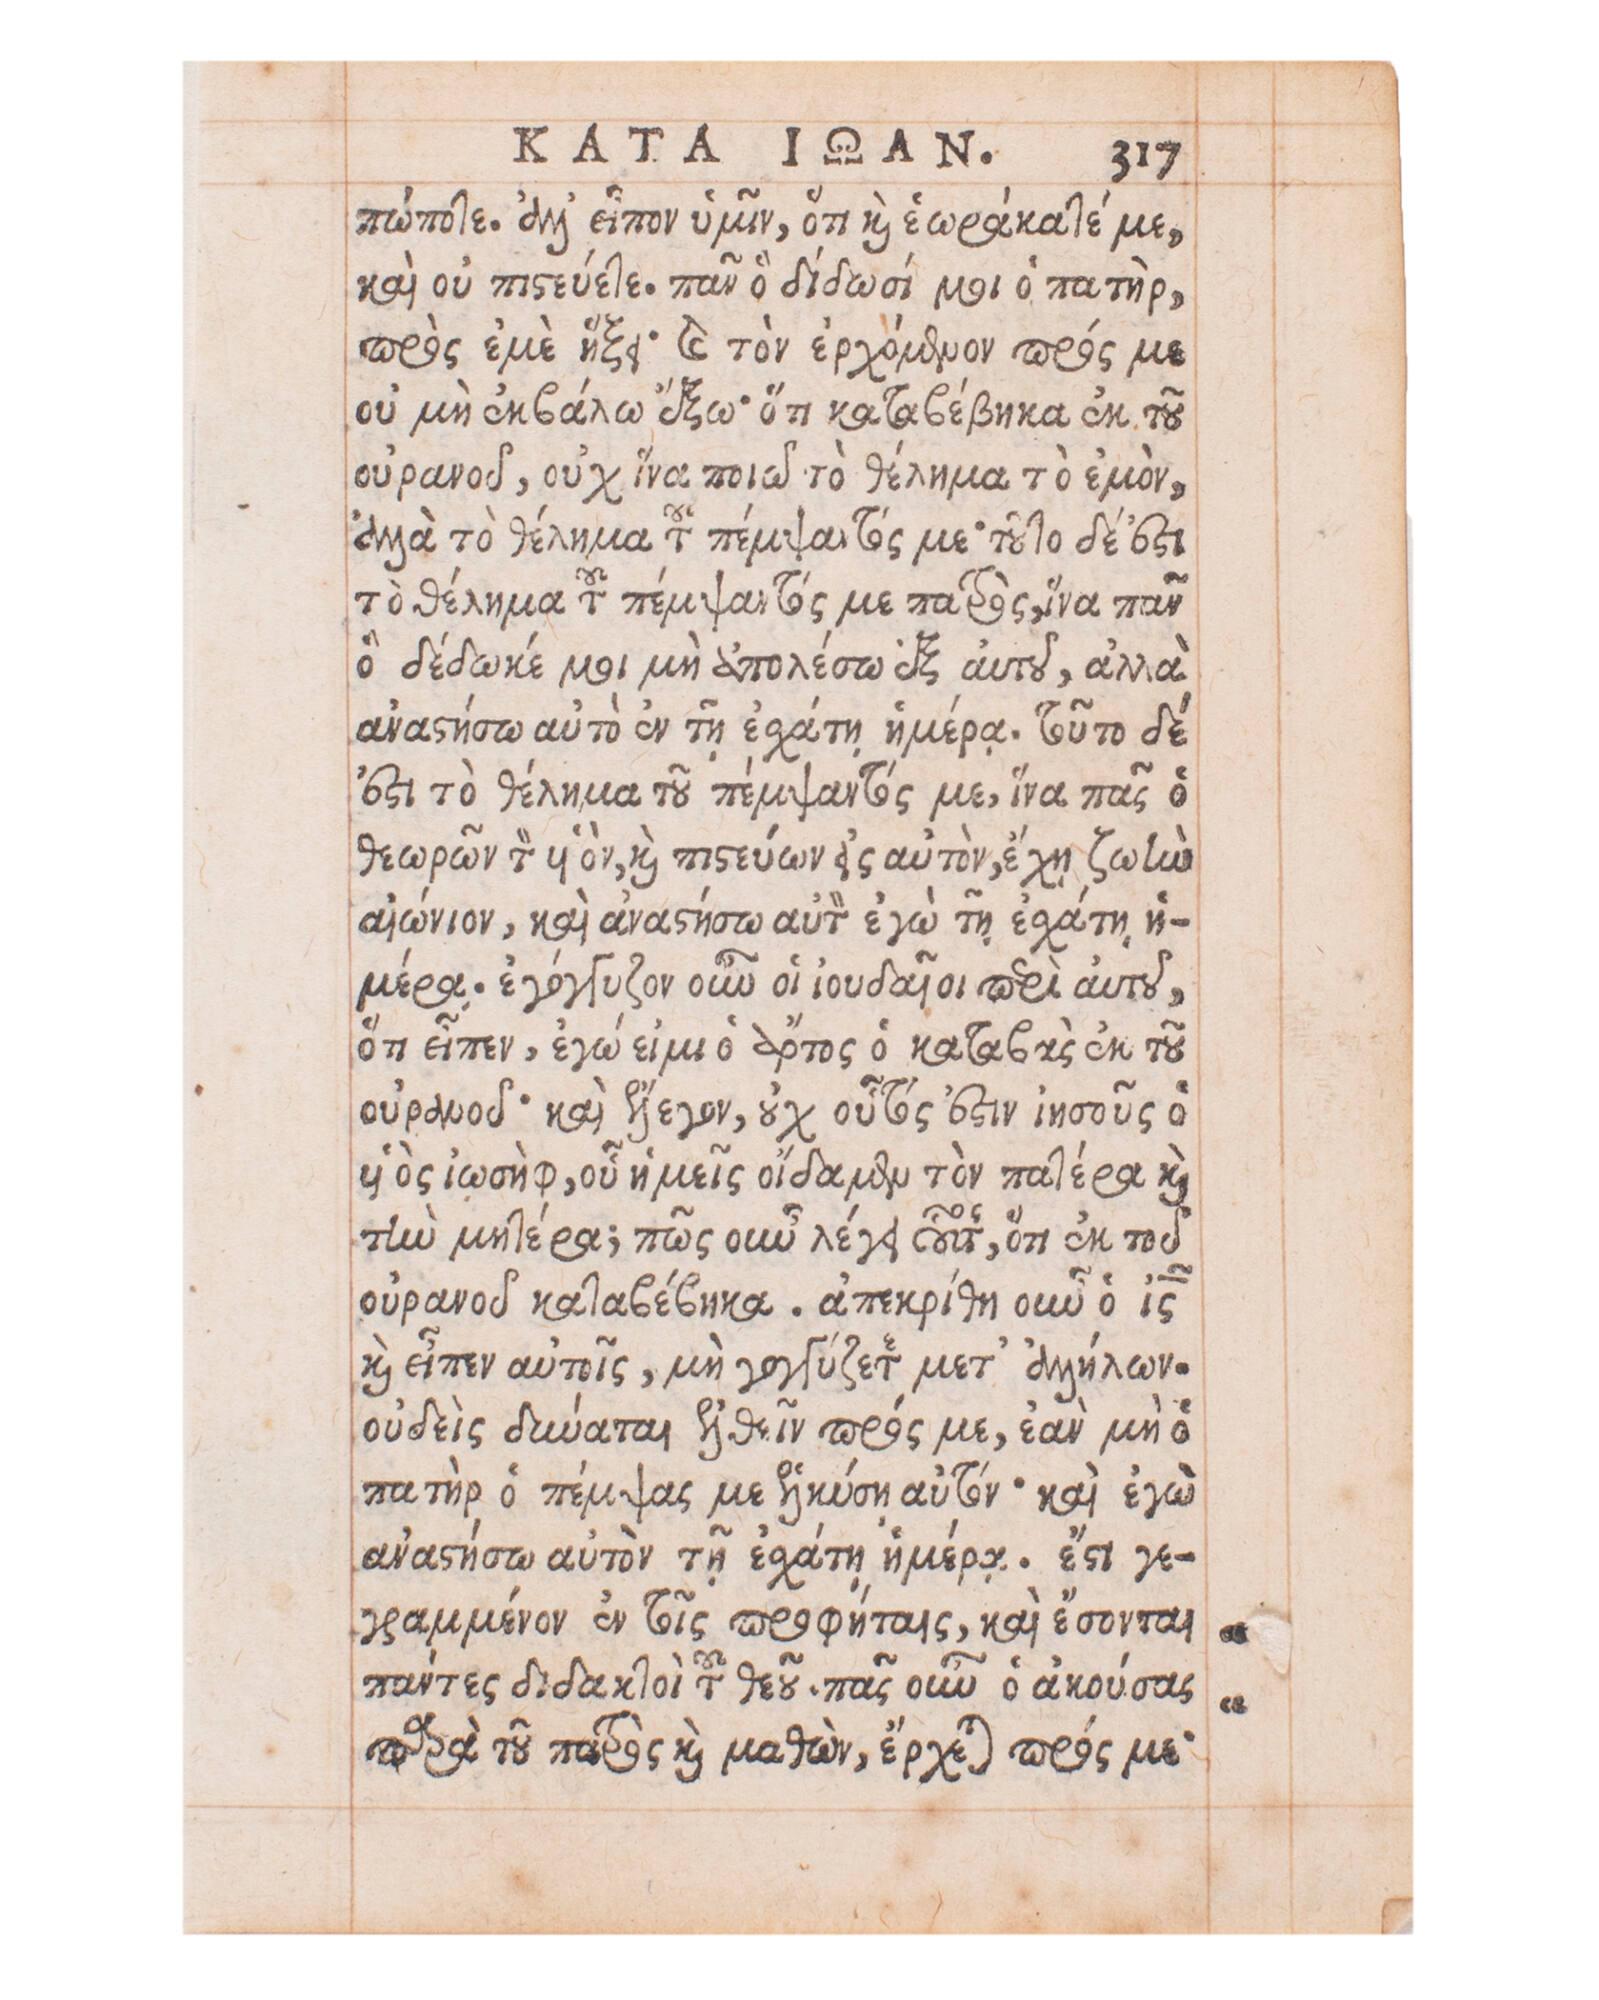 ΚΑΤΑ ΙΩΑΝ. 317
πώποτε. ἀλλ' εἶπον ὑμῖν, ὅτι καὶ ἑωράκατέ με,
καὶ οὐ πιστεύετε. πᾶν ὃ δίδωσί μοι ὁ πατὴρ,
πρὸς ἐμὲ ἥξει· καὶ τὸν ἐρχόμενον πρός με
οὐ μὴ ἐκβάλω ἔξω· ὅτι καταβέβηκα ἐκ τοῦ
οὐρανοῦ, οὐχ ἵνα ποιῶ τὸ θέλημα τὸ ἐμὸν,
ἀλλὰ τὸ θέλημα τοῦ πέμψαντός με· τοῦτο δέ ἐστι
τὸ θέλημα τοῦ πέμψαντός με πατρὸς, ἵνα πᾶν
ὃ δέδωκέ μοι μὴ ἀπολέσω ἐξ αὐτοῦ, ἀλλὰ
ἀναστήσω αὐτὸ ἐν τῇ ἐσχάτῃ ἡμέρᾳ. τοῦτο δέ
ἐστι τὸ θέλημα τοῦ πέμψαντός με, ἵνα πᾶς ὁ
θεωρῶν τὸν υἱὸν, καὶ πιστεύων εἰς αὐτὸν, ἔχῃ ζωὴν
αἰώνιον, καὶ ἀναστήσω αὐτὸν ἐγὼ τῇ ἐσχάτῃ ἡ-
μέρᾳ. ἐγόγγυζον οὖν οἱ ἰουδαῖοι περὶ αὐτοῦ,
ὅτι εἶπεν, ἐγώ εἰμι ὁ ἄρτος ὁ καταβὰς ἐκ τοῦ
οὐρανοῦ· καὶ ἔλεγον, οὐχ οὗτός ἐστιν ἰησοῦς ὁ
υἱὸς ἰωσὴφ, οὗ ἡμεῖς οἴδαμεν τὸν πατέρα καὶ
τὴν μητέρα; πῶς οὖν λέγει οὗτος, ὅτι ἐκ τοῦ
οὐρανοῦ καταβέβηκα. ἀπεκρίθη οὖν ὁ ἰς̃
καὶ εἶπεν αὐτοῖς, μὴ γογγύζετε μετ' ἀλλήλων.
οὐδεὶς δύναται ἐλθεῖν πρός με, ἐὰν μὴ ὁ
πατὴρ ὁ πέμψας με ἑλκύσῃ αὐτόν· καὶ ἐγὼ
ἀναστήσω αὐτὸν τῇ ἐσχάτῃ ἡμέρᾳ. ἔστι γε-
γραμμένον ἐν τοῖς προφήταις, καὶ ἔσονται “
πάντες διδακτοὶ τοῦ θεοῦ. πᾶς οὖν ὁ ἀκούσας “
παρὰ τοῦ πατρὸς καὶ μαθὼν, ἔρχεται πρός με·